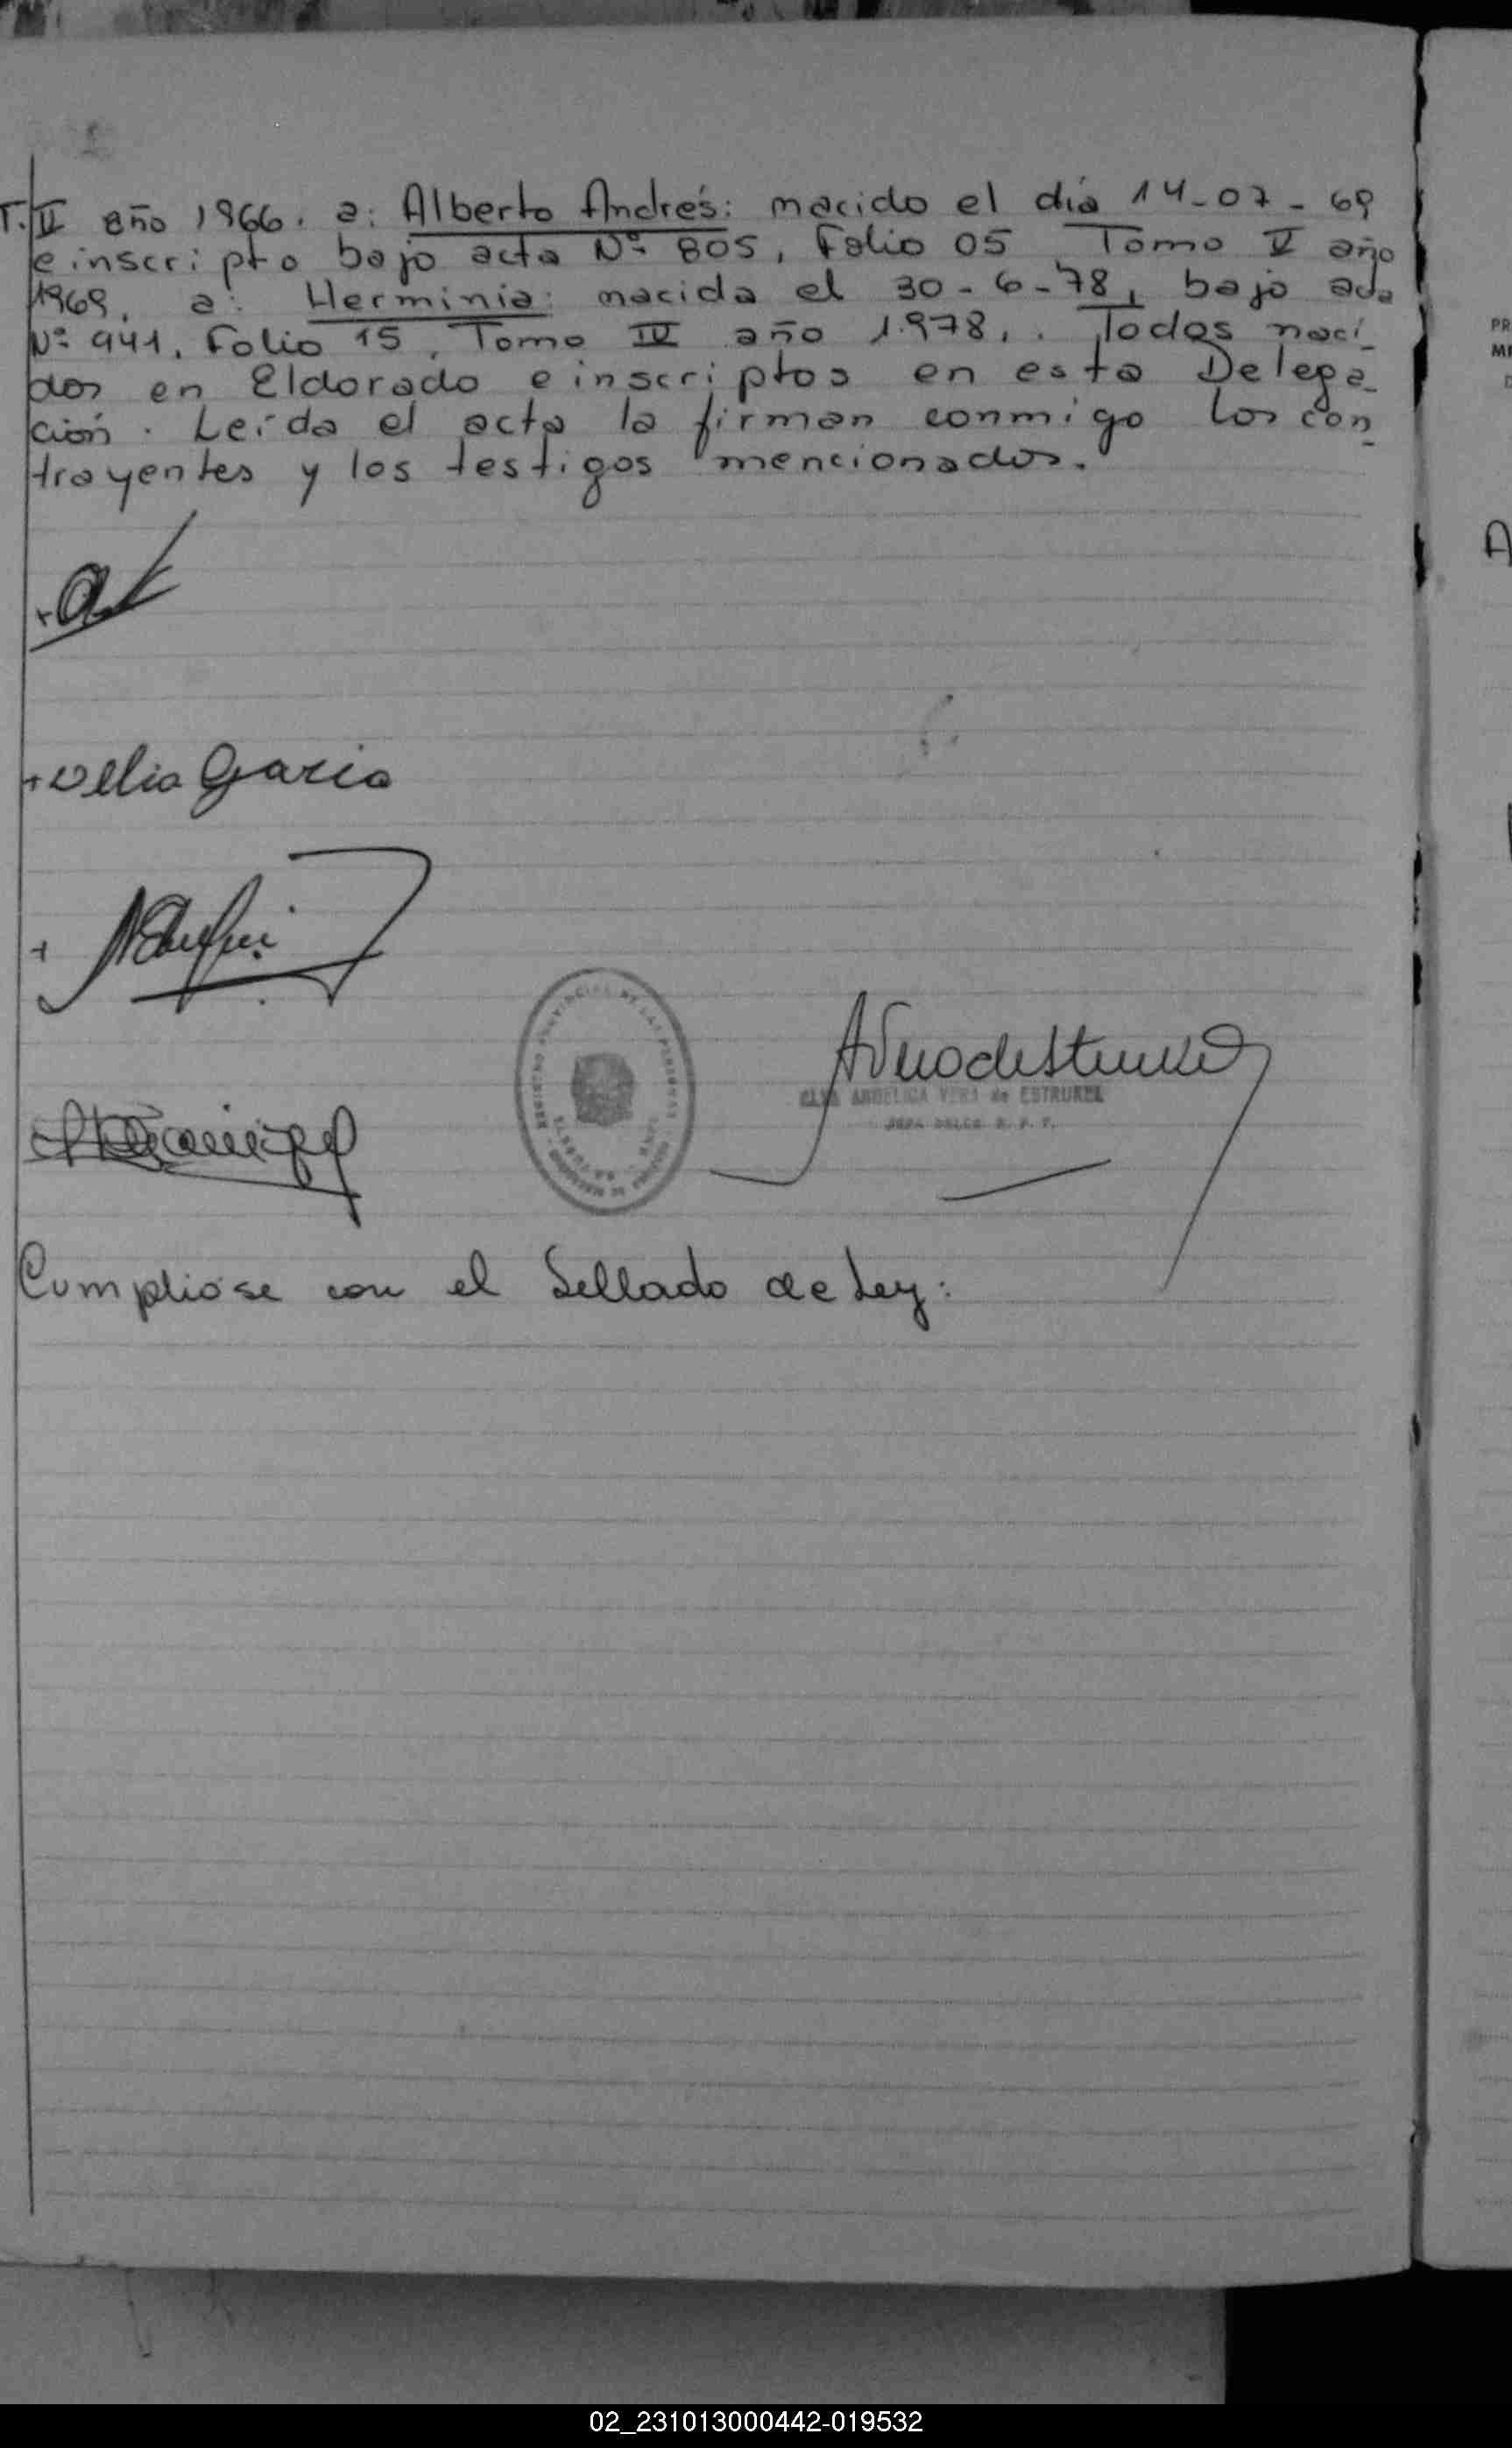 T. II año 1966. a: Alberto Andrés: nacido el día 14-07-69
e inscripto bajo acta Nº 805, Folio 05 Tomo V año
1969, a: Herminia: nacida el 30-6-78, bajo acta
Nº 941, Folio 15, Tomo IV año 1.978,. Todos naci-
dos en Eldorado e inscriptos en esta Delega-
ción. Leída el acta la firman conmigo los con-
trayentes y los testigos mencionados.
+ velia Garcia
REGISTRO PROVINCIAL DE LAS PERSONAS
ANGELICA VERA de ESTRUKEL
JEFA R. P. P.
Cumplióse con el Sellado de Ley:
PR
MI
D
A
02_231013000442-019532